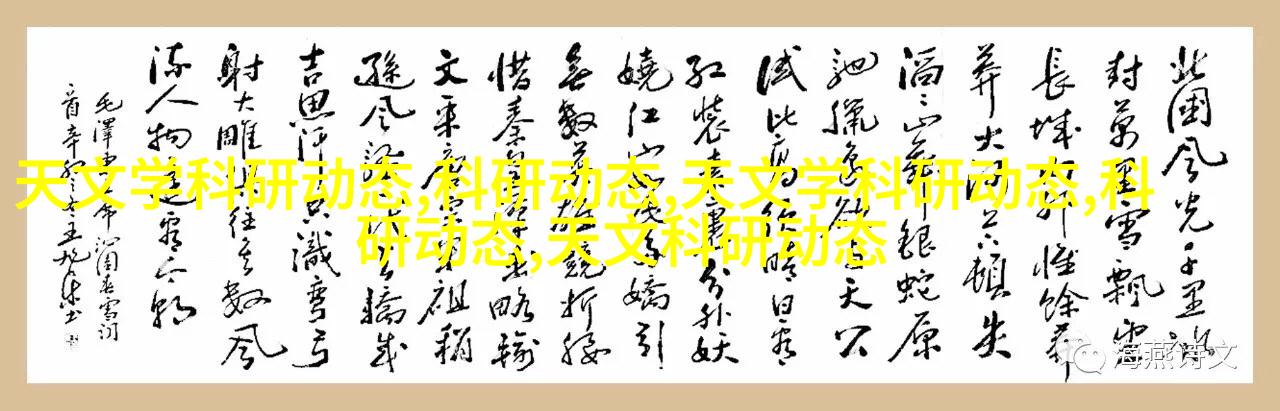 北國风光千里冰
封萬里雪飄望
長城内外惟餘莽
莽大河上下頓失
滔滔山舞銀蛇原
馳臘象欲與天公
試比高须晴日看
红裝素裹分外妖
嬈江山如此多嬌引
無數英雄競折腰
惜秦皇漢武略輸
文采唐宗宋祖稍
遜风骚一代天驕成
吉思汗只識彎弓
射大雕俱往矣數风
流人物還看今朝
毛澤東沁園春雪詞
天文学科研动态,科研动态,天文学科研动态,科
研动态,天文科研动态
海燕诗文